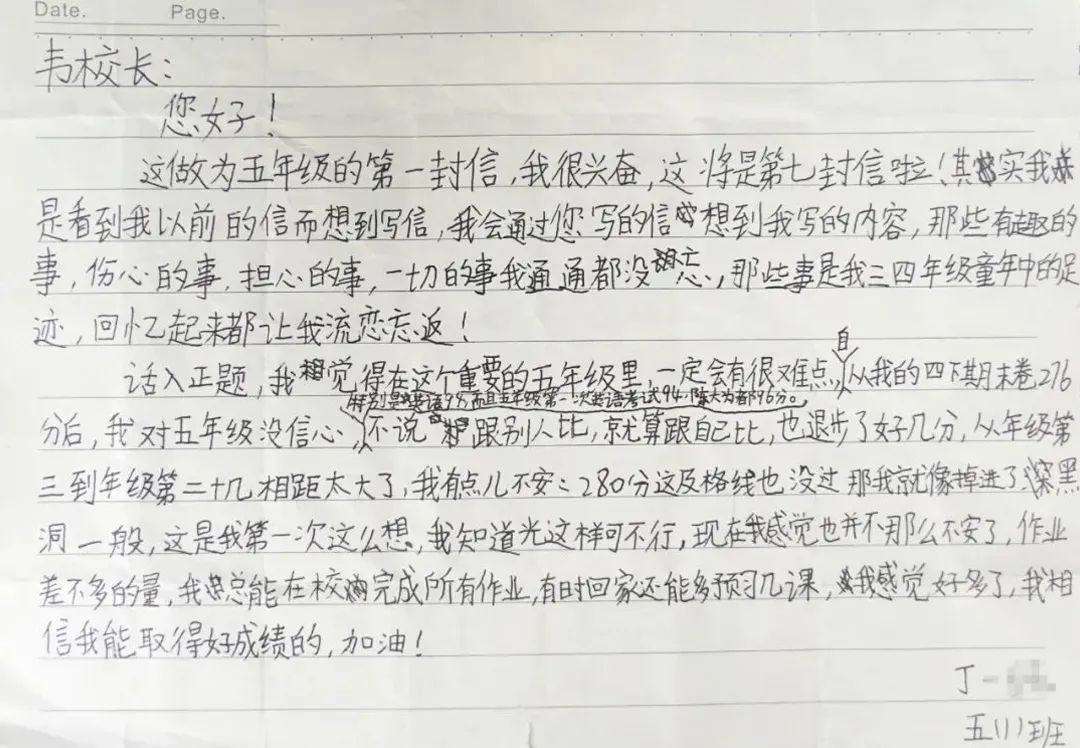 Date. Page.
韦校长：
您好！
这做为五年级的第一封信，我很兴奋，这将是第七封信啦！其实我
是看到我以前的信而想到写信，我会通过您写的信想到我写的内容，那些有趣的
事，伤心的事，担心的事，一切的事我通通都没忘，那些事是我三四年级童年中的足
迹，回忆起来都让我流恋忘返！
自
话入正题，我觉得在这个重要的五年级里，一定会有很难点，从我的四下期末卷276
特别是英语98，而且五年级第一次英语考试94，陈大为都96分。
分后，我对五年级没信心，不说跟别人比，就算跟自己比，也退步了好几分，从年级第
三到年级第二十几相距太大了，我有点儿不安：280分这及格线也没过那我就像掉进了深黑
洞一般，这是我第一次这么想，我知道光这样可不行，现在我感觉也并不那么不安了，作业
差不多的量，我总能在校完成所有作业，有时回家还能多预习几课，我感觉好多了，我相
信我能取得好成绩的，加油！
丁一
五（1）班